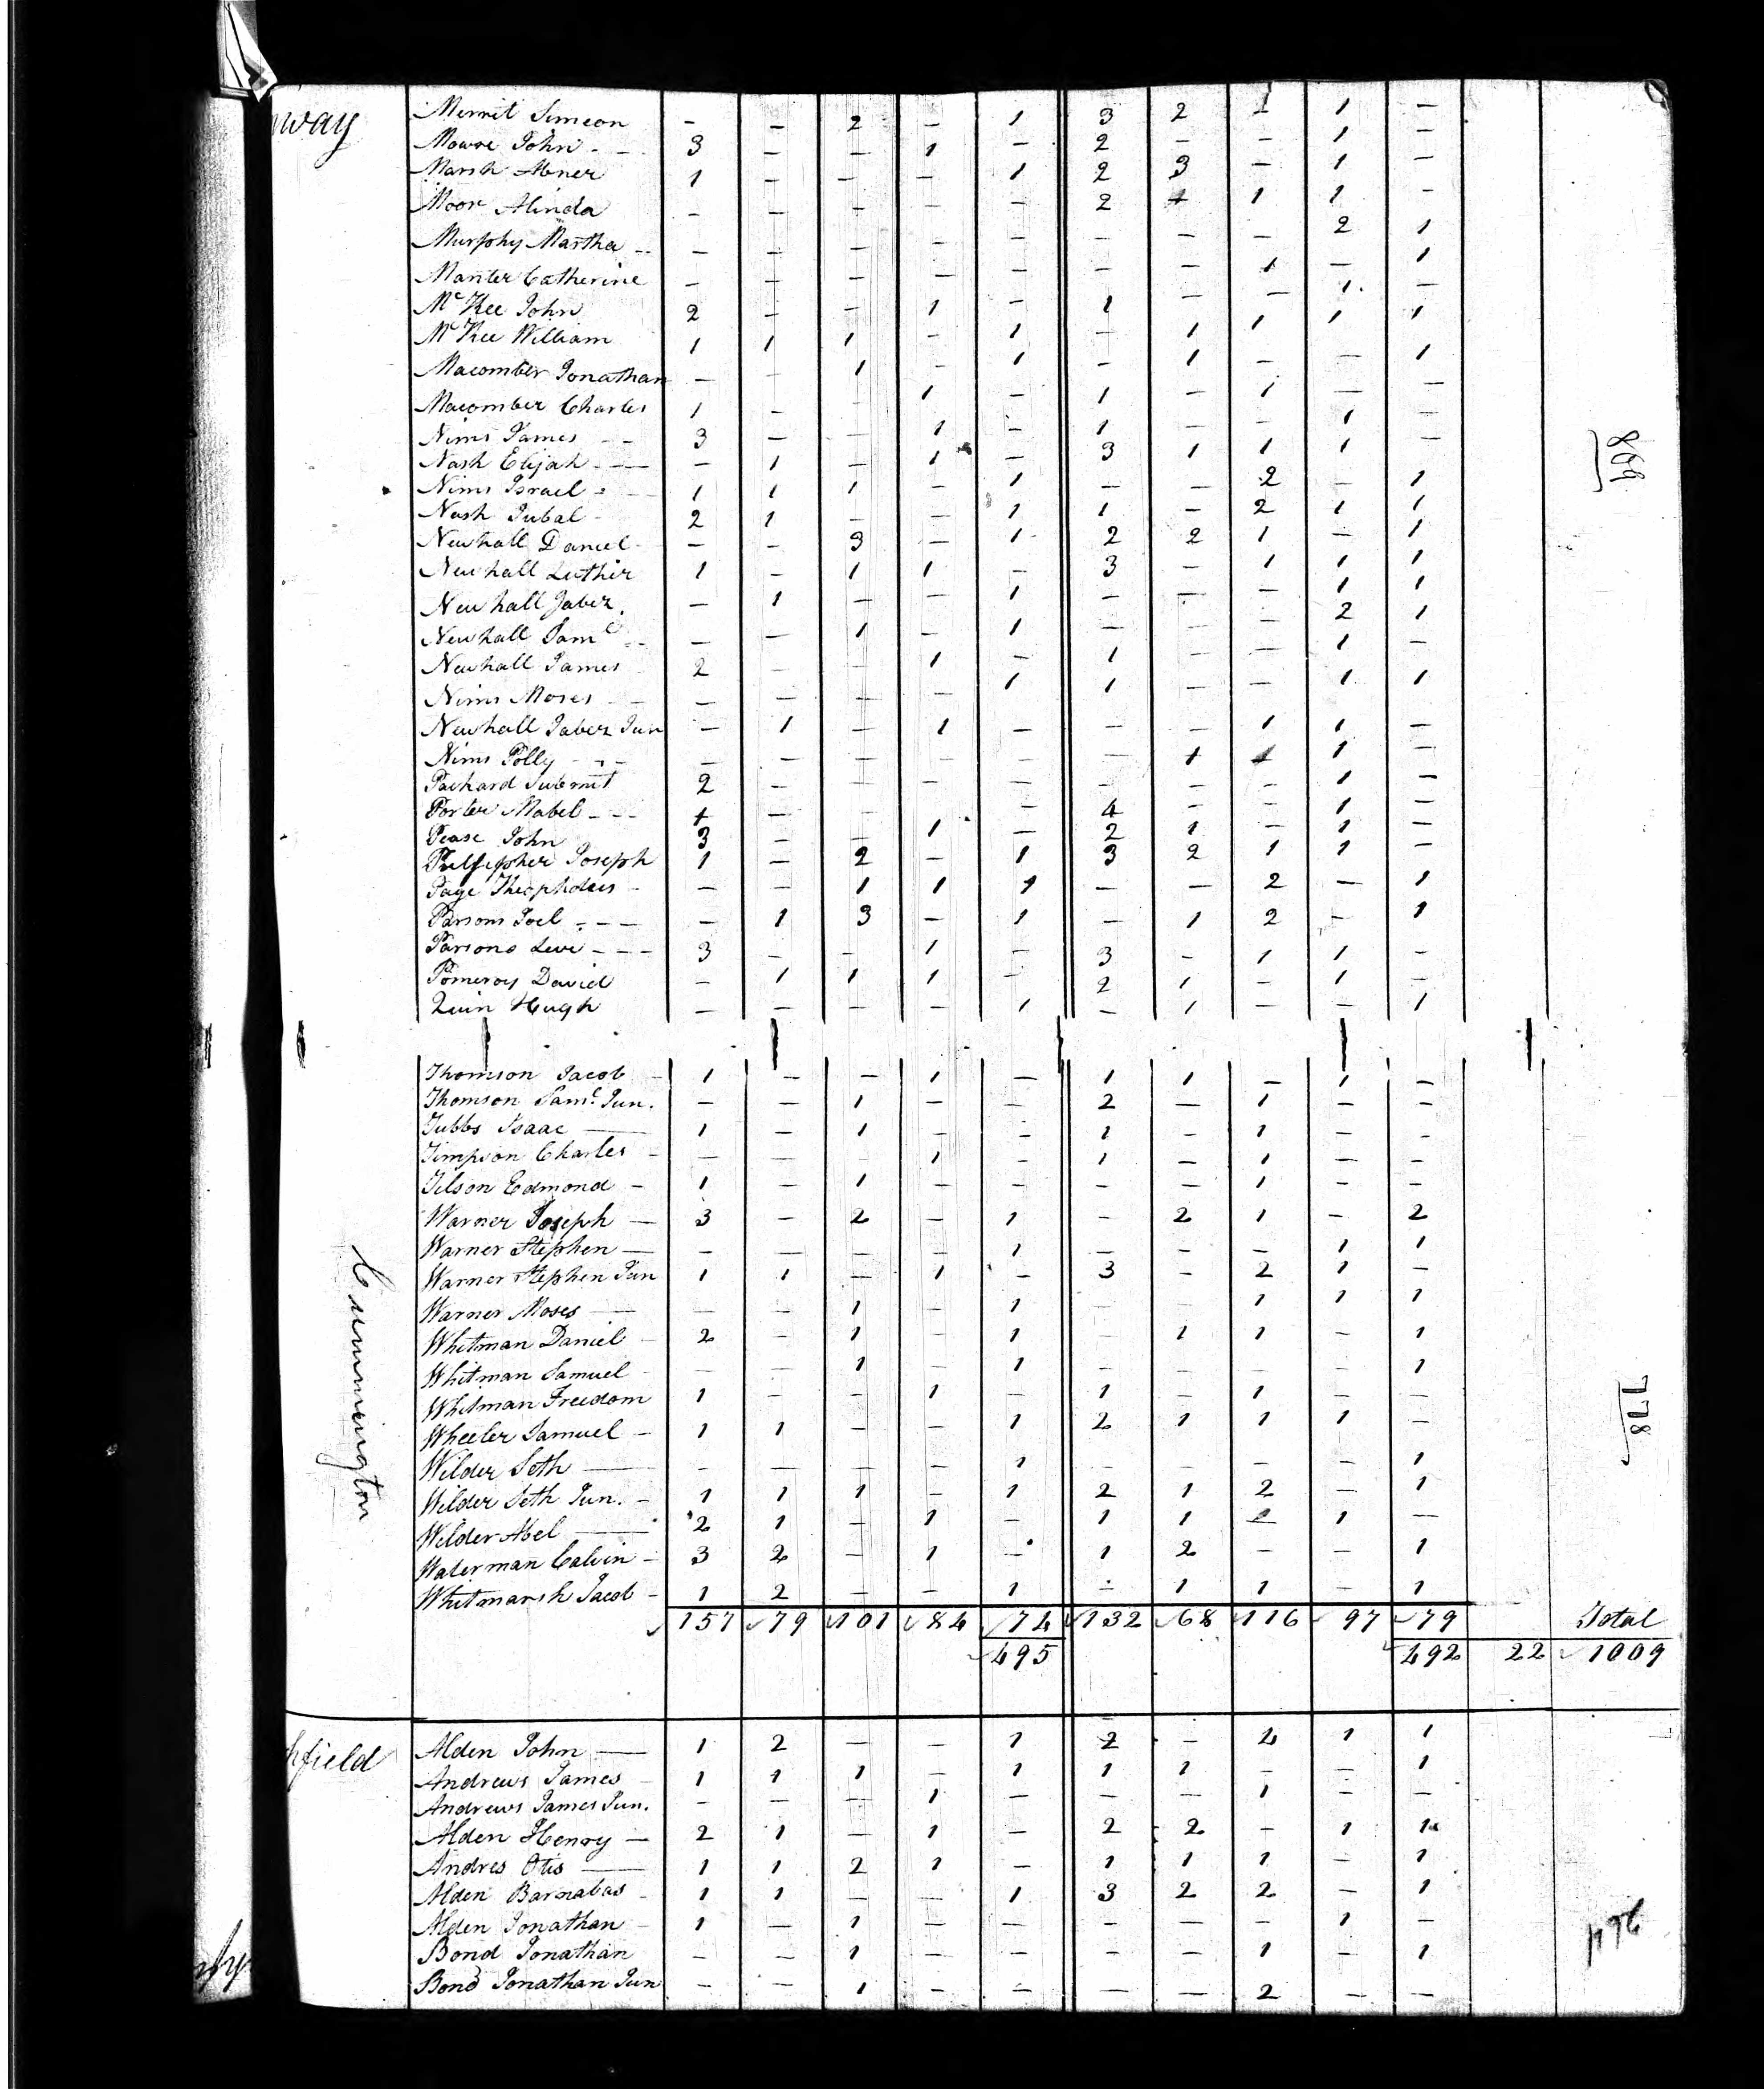 way
Merrit Simeon - - 2 - 1 3 2 1 1 -
Mowre John 3 - - 1 - 2 - - 1 -
Marsh Abner 1 - - - 1 2 3 - 1 -
Moor Alinda - - - - - 2 + 1 1 -
Murphy Martha - - - - - - - - 2 1
Manter Catherine - - - - - - - 1 - 1
McKee John 2 - - 1 - 1 - - 1 -
McKee William 1 1 1 - 1 - 1 1 1 1
Macomber Jonathan - - 1 - 1 - 1 - - 1
Macomber Charles 1 - - 1 - 1 - 1 - -
Nims James 3 - - 1 - 1 - - 1 -
Nash Elijah - 1 - 1 - 3 1 1 1 -
Nims Israel 1 1 1 - 1 - - 2 - 1
Nash Jubal 2 1 - - 1 1 - 2 1 1
Newhall Daniel - - 3 - 1 2 2 1 - 1
Newhall Luther 1 - 1 1 - 3 - 1 1 1
Newhall Jabez - 1 - - 1 - - - 1 1
Newhall Saml - - 1 - 1 - - - 2 1
Newhall James 2 - - 1 - 1 - - 1 -
Nims Moses - - - - 1 1 - - 1 1
Newhall Jabez Jun - 1 - 1 - - - 1 1 -
Nims Polly - - - - - - + + 1 -
Packard Submit 2 - - - - - - - 1 -
Porter Mabel + - - - - 4 - - 1 -
Pease John 3 - - 1 - 2 1 - 1 -
Pulsepher Joseph 1 - 2 - 1 3 2 1 1 -
Page Theopholus - - 1 1 1 - - 2 - 1
Parsons Joel - 1 3 - 1 - 1 2 - 1
Parsons Levi 3 - - 1 - 3 - 1 1 -
Pomeroy David - 1 1 1 - 2 1 - 1 -
Quin Hugh - - - - 1 - 1 - - 1
Cummington
Thomson Jacob 1 - - 1 - 1 1 - 1 -
Thomson Saml Jun. - - 1 - - 2 - 1 - -
Tubbs Isaac 1 - 1 - - 1 - 1 - -
Timpson Charles - - - 1 - 1 - 1 - -
Tilson Edmond 1 - 1 - - - - 1 - -
Warner Joseph 3 - 2 - 1 - 2 1 - 2
Warner Stephen - - - - 1 - - - 1 1
Warner Stephen Jun 1 1 - 1 - 3 - 2 1 -
Warner Moses - - 1 - 1 - - 1 1 1
Whitman Daniel 2 - 1 - 1 - 1 1 - 1
Whitman Samuel - - 1 - 1 - - - - 1
Whitman Freedom 1 - - 1 - 1 - 1 - -
Wheeler Samuel 1 1 - - 1 2 1 1 1 -
Wilder Seth - - - - 1 - - - - 1
Wilder Seth Jun. 1 1 1 - 1 2 1 2 - 1
Wilder Abel 2 1 - 1 - 1 1 1 1 -
Waterman Calvin 3 2 - 1 - 1 2 - - 1
Whitmarsh Jacob 1 2 - - 1 - 1 1 - 1
157 79 101 84 74 132 68 116 97 79 Total
495 492 22 1009
field
Alden John 1 2 - - 1 2 - 4 1 1
Andrews James 1 1 1 - 1 1 1 - - 1
Andrews James Jun. - - - 1 - - - 1 - -
Alden Henry 2 1 - 1 - 2 2 - 1 1
Andres Otis 1 1 2 1 - 1 1 1 - 1
Alden Barnabas 1 1 - - 1 3 2 2 - 1
Alden Jonathan 1 - 1 - - - - - 1 -
Bond Jonathan - - 1 - - - - 1 - 1
Bond Jonathan Jun - - 1 - - - - 2 - -
778